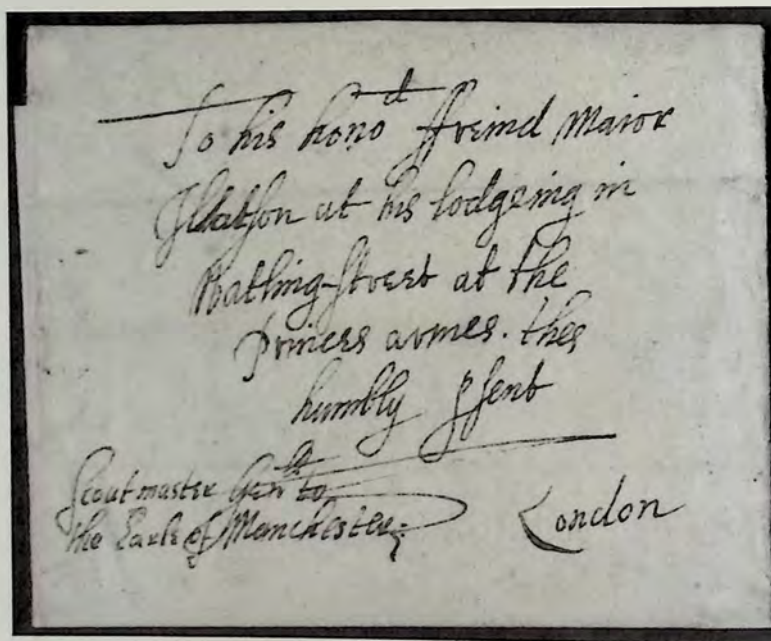 To his hono^d ffreind Maior
Watson at his lodgeing in
Watling-street at the
princes armes. thes
humbly psent
Scoutmaster Gen^ll to
the Earle of Manchester
London